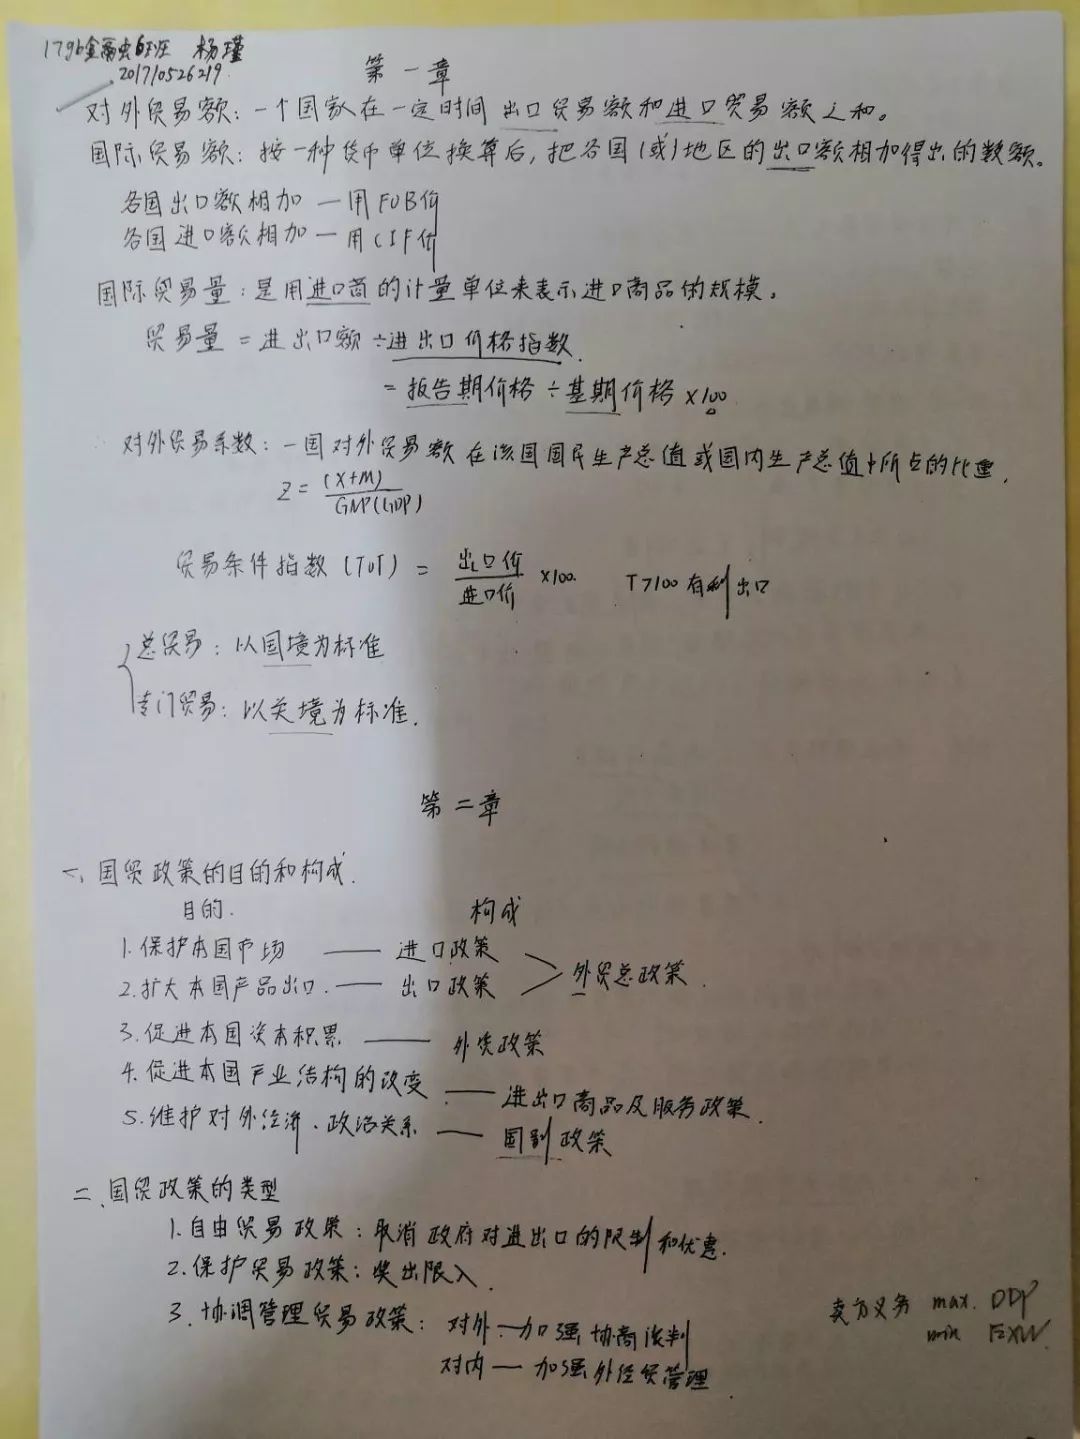 17gb金融6班 杨瑾
201710526219
第一章
对外贸易额：一个国家在一定时间出口贸易额和进口贸易额之和。
国际贸易额：按一种货币单位换算后，把各国（或）地区的出口额相加得出的数额。
各国出口额相加 — 用FOB价
各国进口额相加 — 用CIF价
国际贸易量：是用进口商的计量单位来表示进口商品的规模。
贸易量 = 进出口额÷进出口价格指数.
= 报告期价格÷基期价格×100
对外贸易系数：一国对外贸易额在该国国民生产总值或国内生产总值中所占的比重.
Z = (X+M)
GNP(GDP)
贸易条件指数（TOT） = 出口价/进口价 ×100. T>100有利出口
总贸易：以国境为标准
专门贸易：以关境为标准.
第二章
一、国贸政策的目的和构成.
目的. 构成
1.保护本国市场 — 进口政策
2.扩大本国产品出口. — 出口政策 > 外贸总政策.
3.促进本国资本积累 — 外资政策
4.促进本国产业结构的改变 — 进出口商品及服务政策.
5.维护对外经济、政治关系 — 国别政策
二、国贸政策的类型
1.自由贸易政策：取消政府对进出口的限制和优惠.
2.保护贸易政策：奖出限入.
3.协调管理贸易政策：对外—加强协商谈判
对内—加强外经贸管理.
卖方义务 max. DDP
min EXW